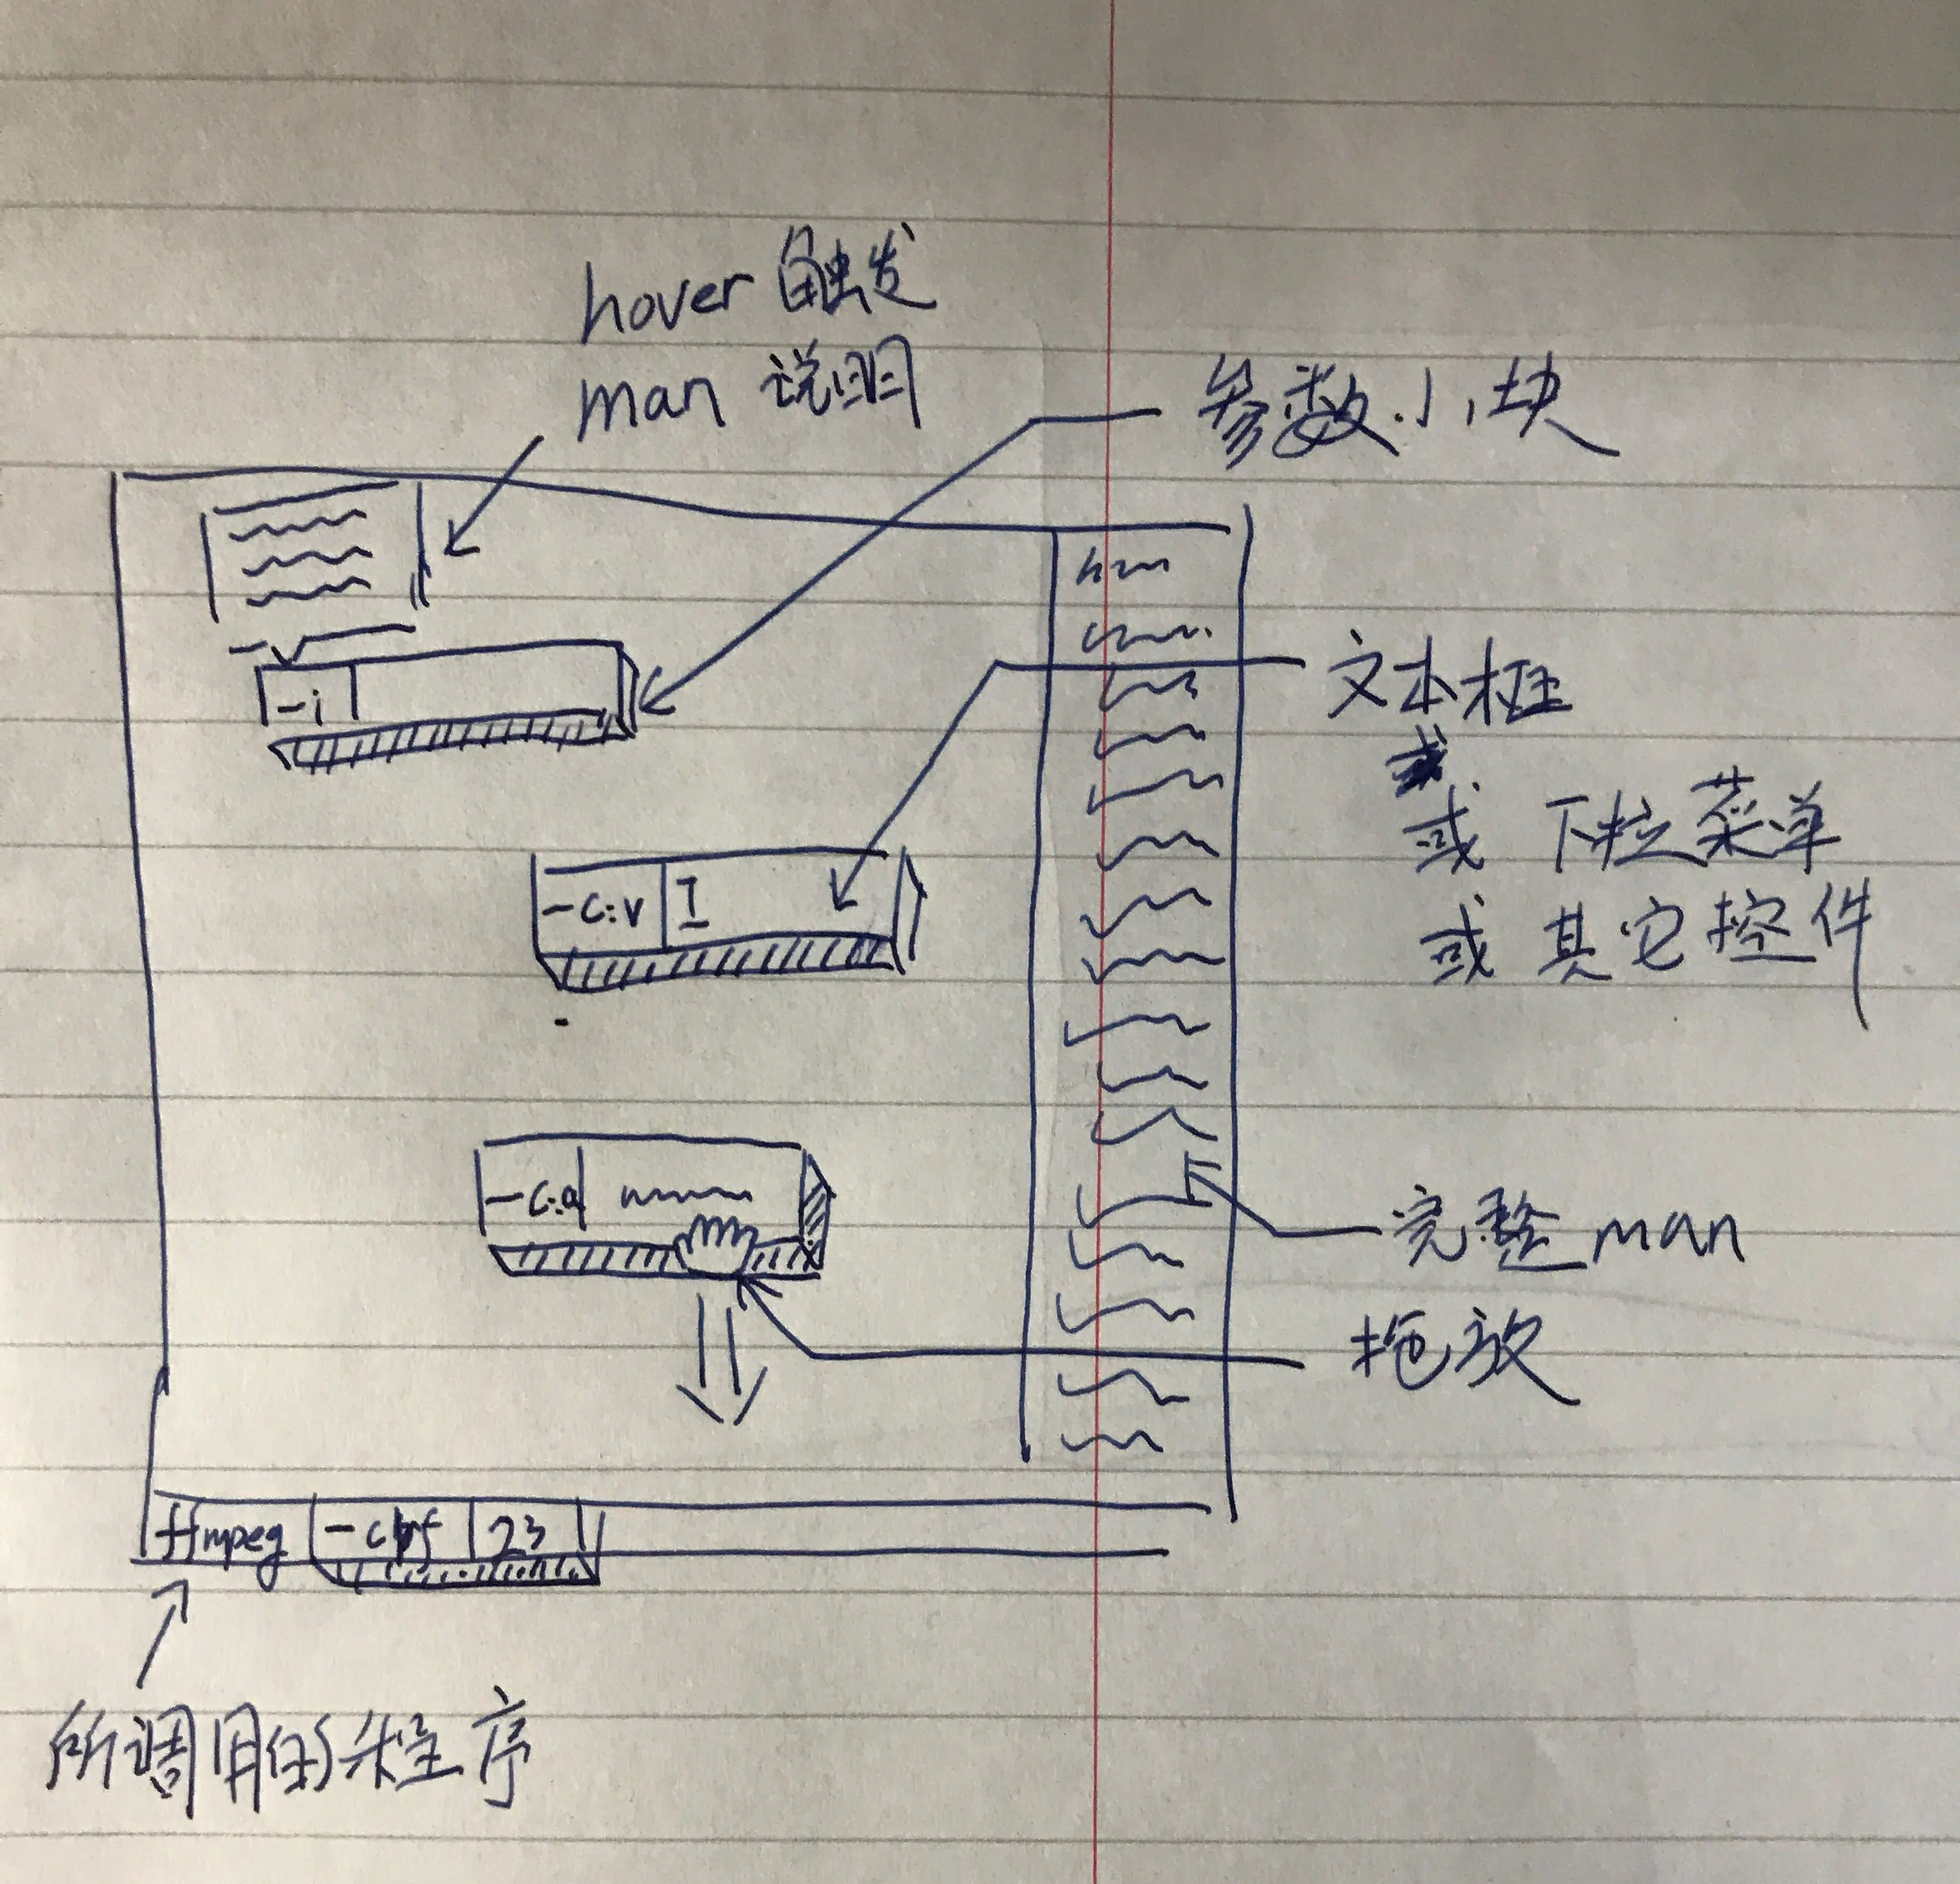 hover 触发
man 说明
参数小块
-i
文本框
或 下拉菜单
或 其它控件
-c:v I
-c:a
完整man
拖放
ffmpeg -crf 23
所调用的程序